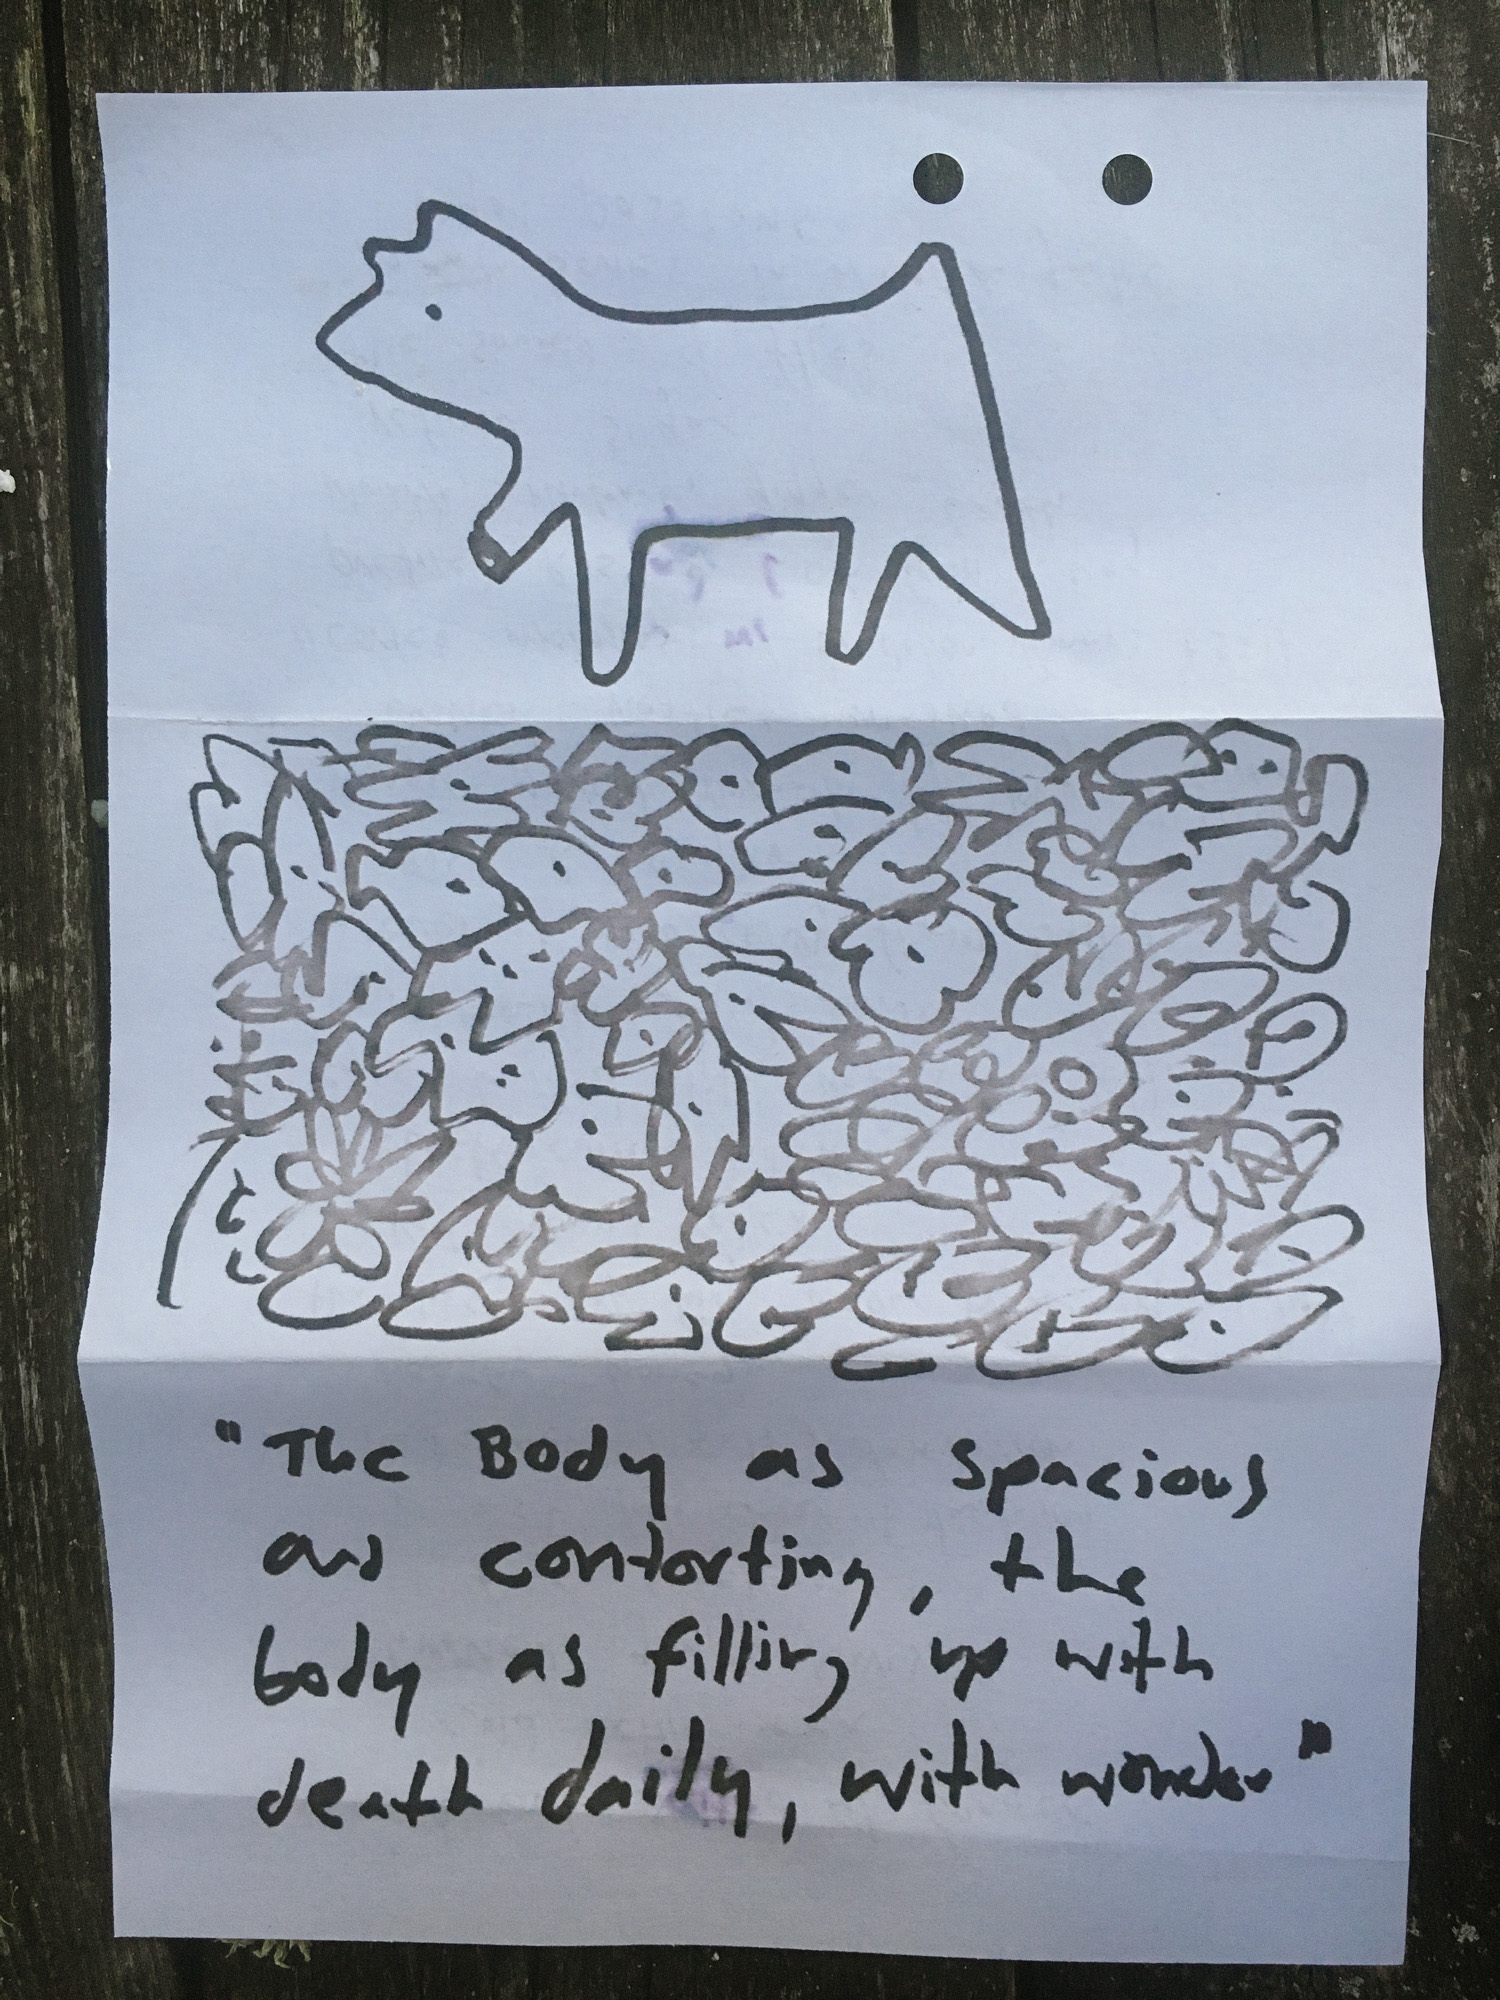 "The Body as spacious
and contorting, the
body as filling up with
death daily, with wonder"